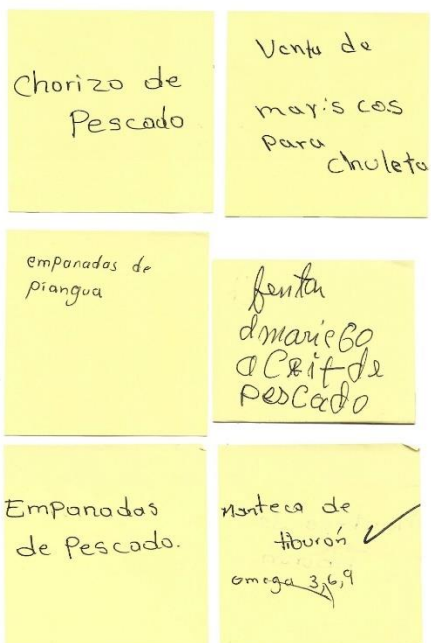 Chorizo de
Pescado
Venta de
mariscos
para
chuleta
empanadas de
piangua
fenta
dmarieco
aCeit de
PesCado
Empanadas
de Pescado.
Manteca de
tiburón ✓
omega 3,6,9